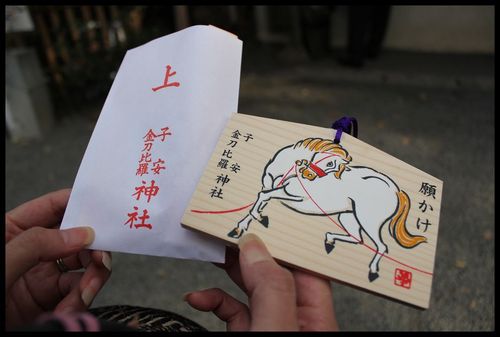 上
子安
金刀比羅
神社
子安
金刀比羅
神社
願かけ